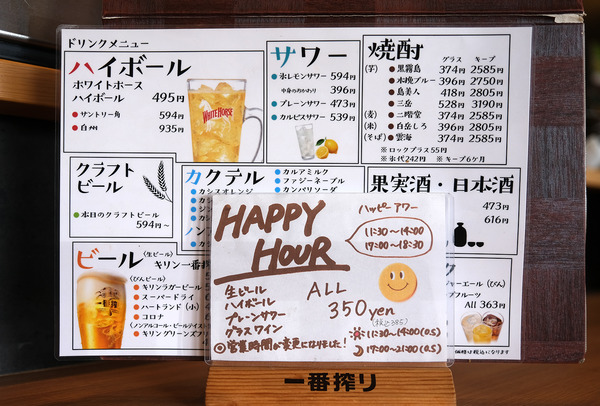 ドリンクメニュー
ハイボール
ホワイトホース
ハイボール 495円
サントリー角 594円
白州 935円
WHITE HORSE
サワー
氷レモンサワー 594円
中身のおかわり 396円
プレーンサワー 473円
カルピスサワー 539円
焼酎
グラス キープ
(芋) 黒霧島 374円 2585円
木挽ブルー 396円 2750円
島美人 418円 2805円
三岳 528円 3190円
(麦) 二階堂 374円 2585円
(米) 白岳しろ 396円 2805円
(そば) 雲海 374円 2585円
※ロックプラス55円
※氷代242円 ※キープ6ヶ月
クラフト
ビール
本日のクラフトビール
594円~
カクテル
カシスオレンジ
カルアミルク
ファジーネーブル
カンパリソーダ
果実酒・日本酒
473円
616円
ビール
(生ビール)
キリン一番搾
(びんビール)
キリンラガービー
スーパードライ
ハートランド(小)
コロナ
(ノンアルコール・ビールテイス
キリングリーンズフ
ジャーエール(びん)
プフルーツ
All 363円
価格は税込になります
HAPPY
HOUR
ハッピーアワー
11:30~19:00
17:00~18:30
生ビール
ハイボール
プレーンサワー
グラスワイン
ALL
350yen
(税込385)
営業時間が変更になりました!
11:30~19:00(O.S)
17:00~21:00(O.S)
一番搾り